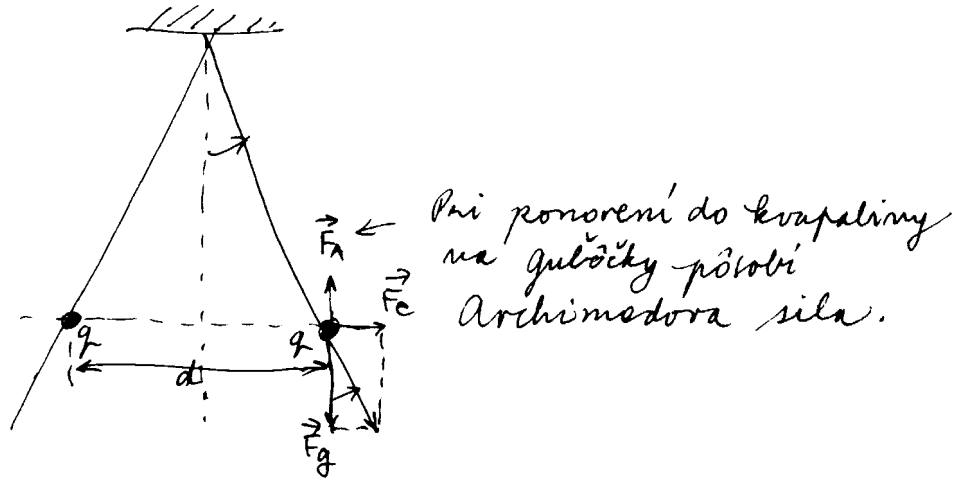 F_A ← Pri ponorení do kvapaliny
na guľôčky pôsobí
F_e Archimedova sila.
q q
d
F_g